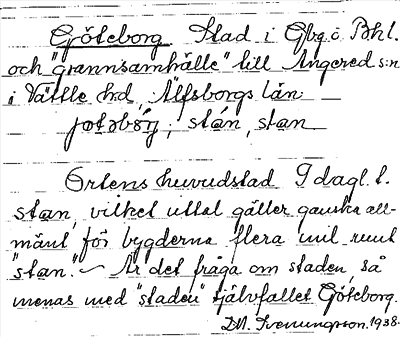 Göteborg Stad i Gbg o. Bhl.
och "grannsamhälle" till Angered s:n
i Vättle hd, Älfsborgs län.
jotəbórj; stán, stan
Ortens huvudstad I dagl. t.
stan, vilket uttal gäller ganska all-
mänt för bygderna flera mil runt
"stan." – Är det fråga om staden, så
menas med "staden" självfallet Göteborg.
D.M. Svenungsson. 1938.